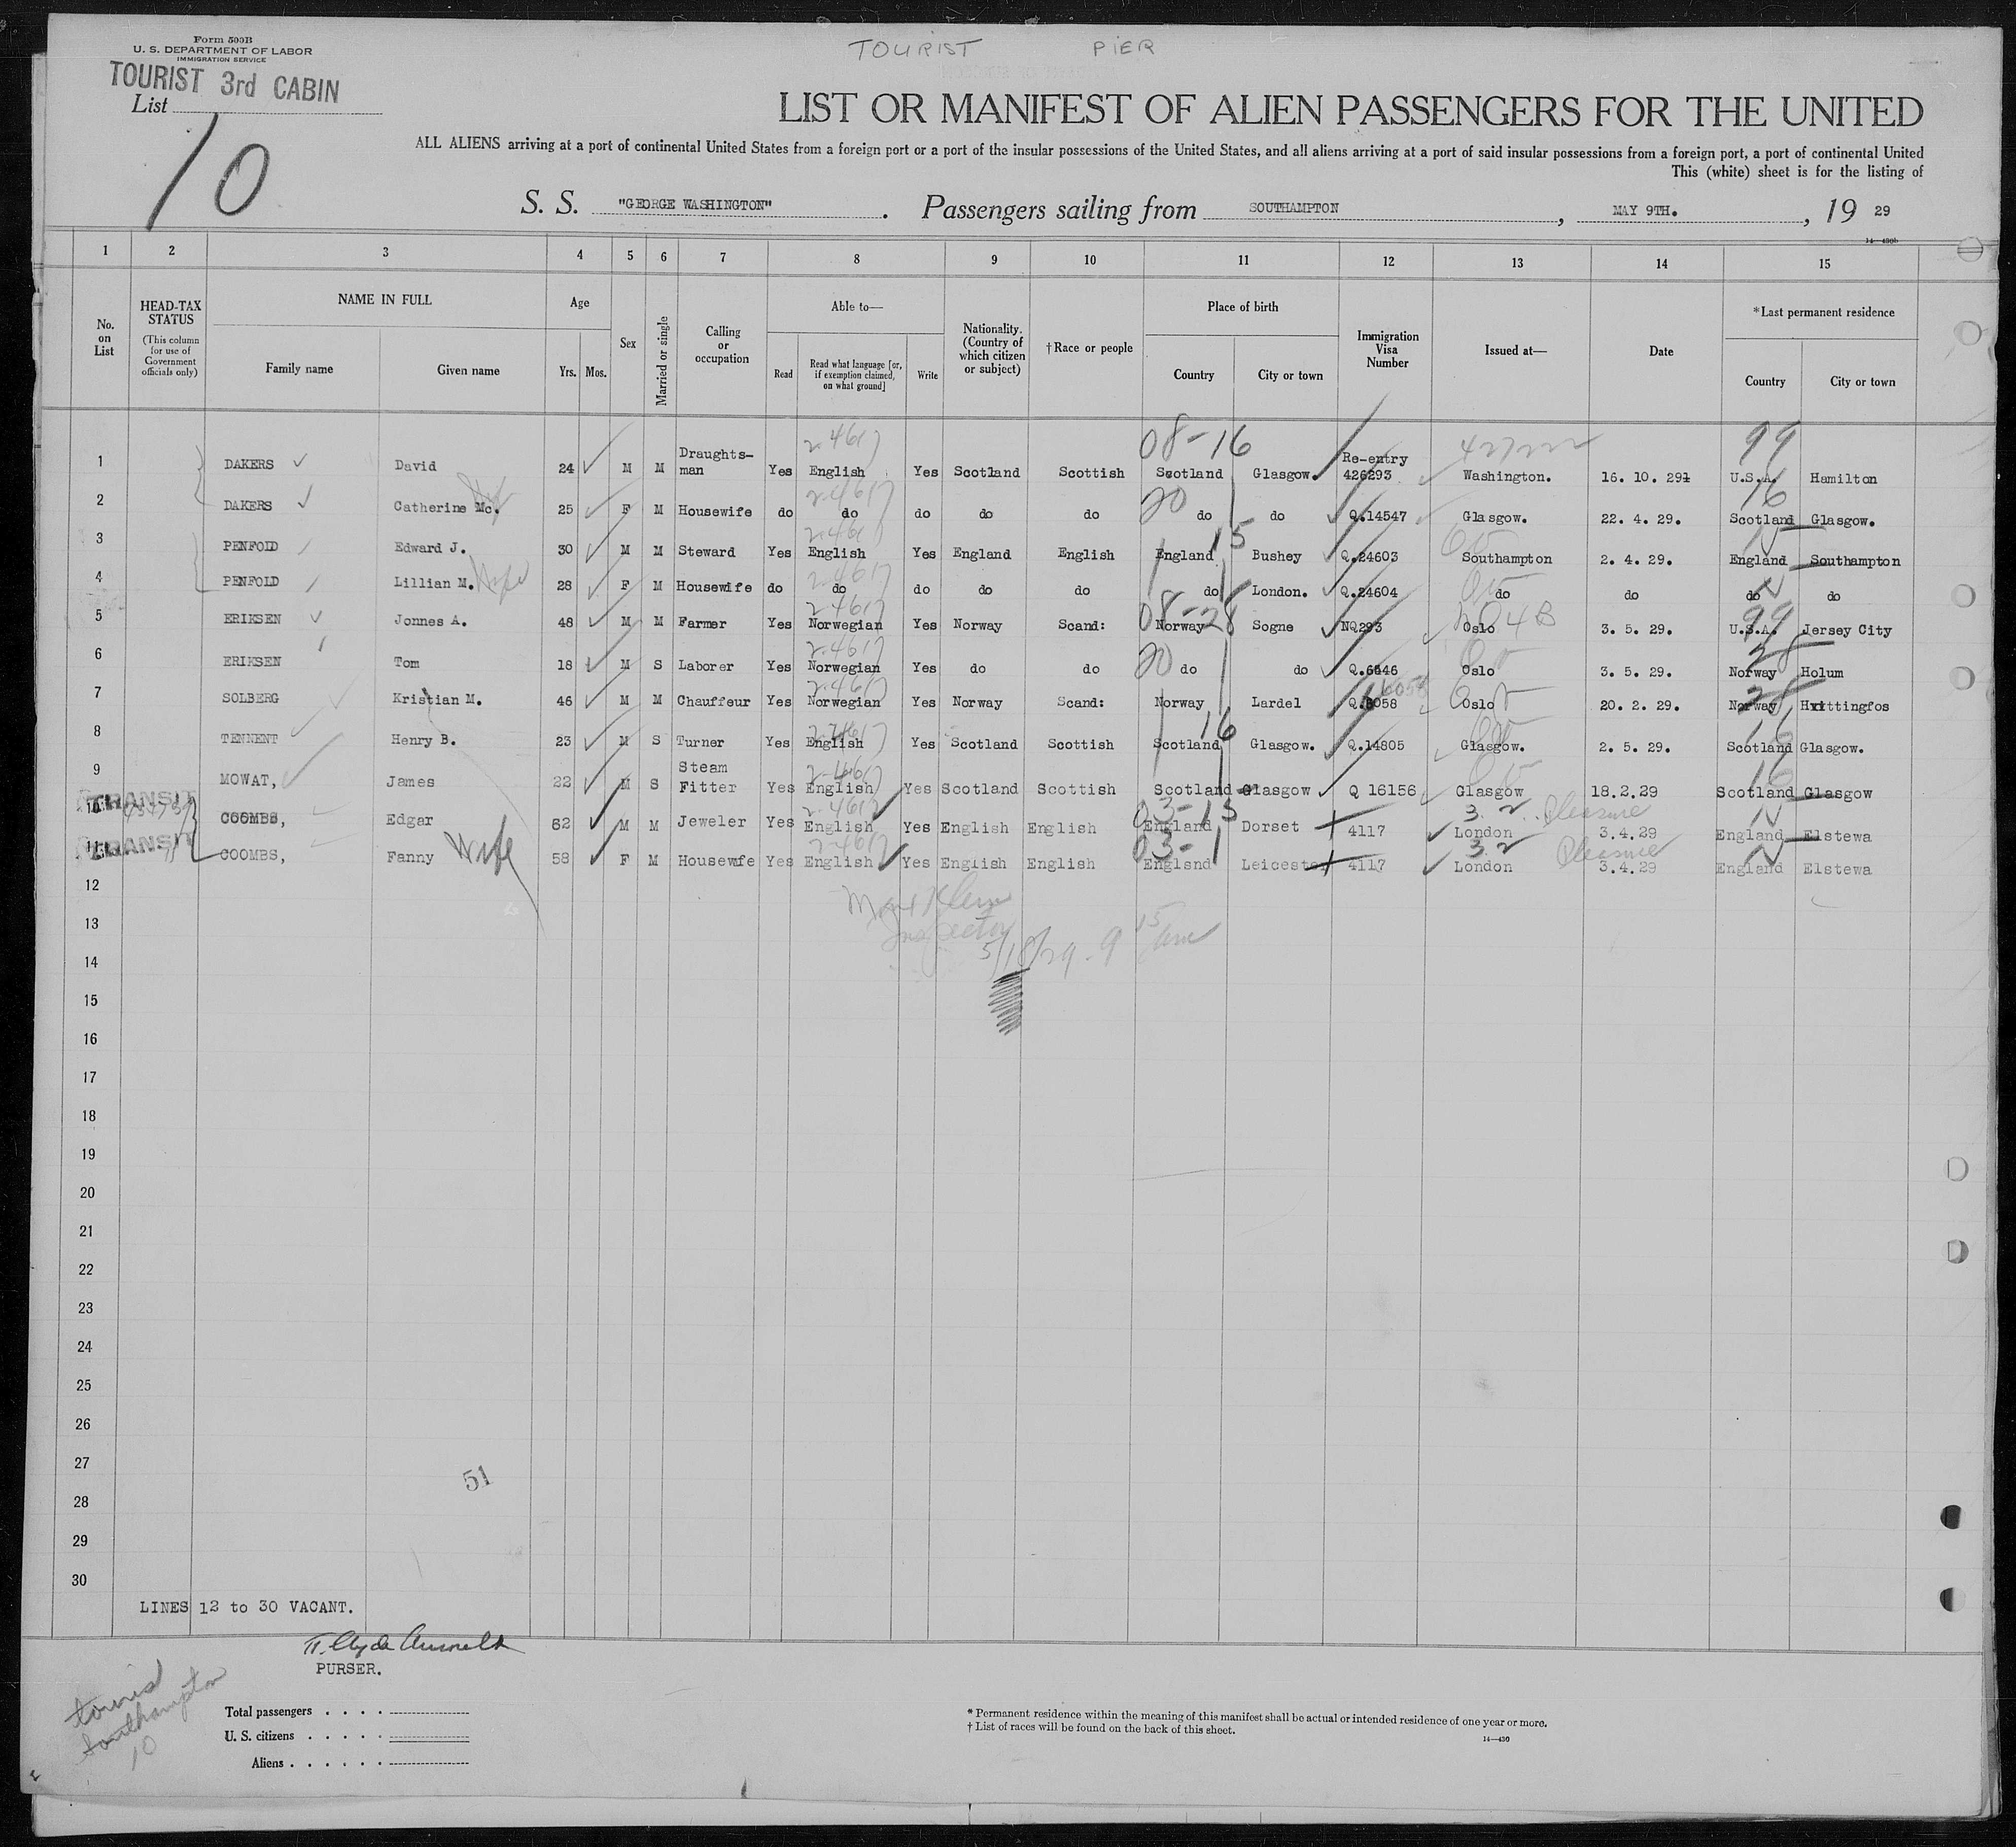 TOURIST PIER
Form 500B
U. S. DEPARTMENT OF LABOR
IMMIGRATION SERVICE
TOURIST 3rd CABIN
List
10
LIST OR MANIFEST OF ALIEN PASSENGERS FOR THE UNITED
ALL ALIENS arriving at a port of continental United States from a foreign port or a port of the insular possessions of the United States, and all aliens arriving at a port of said insular possessions from a foreign port, a port of continental United
This (white) sheet is for the listing of
S. S. "GEORGE WASHINGTON". Passengers sailing from SOUTHAMPTON, MAY 9TH., 19 29
1 2 3 4 5 6 7 8 9 10 11 12 13 14 15
No. on List
HEAD-TAX STATUS
(This column for use of Government officials only)
NAME IN FULL
Family name Given name
Age
Yrs. Mos.
Sex
Married or single
Calling or occupation
Able to—
Read
Read what language [or, if exemption claimed, on what ground]
Write
Nationality. (Country of which citizen or subject)
†Race or people
Place of birth
Country City or town
Immigration Visa Number
Issued at—
Date
*Last permanent residence
Country City or town
1 DAKERS David 24 M M Draughts-man Yes English Yes Scotland Scottish Scotland Glasgow. Re-entry 426293 Washington. 16. 10. 291 U.S.A. Hamilton
2 DAKERS Catherine Mc. 25 F M Housewife do do do do do do do Q.14547 Glasgow. 22. 4. 29. Scotland Glasgow.
3 PENFOLD Edward J. 30 M M Steward Yes English Yes England English England Bushey Q.24603 Southampton 2. 4. 29. England Southampton
4 PENFOLD Lillian M. Wife 28 F M Housewife do do do do do do London. Q.24604 do do do do
5 ERIKSEN Jonnes A. 48 M M Farmer Yes Norwegian Yes Norway Scand: Norway Sogne NQ293 Oslo 3. 5. 29. U.S.A. Jersey City
6 ERIKSEN Tom 18 M S Laborer Yes Norwegian Yes do do do do Q.6546 Oslo 3. 5. 29. Norway Holum
7 SOLBERG Kristian M. 46 M M Chauffeur Yes Norwegian Yes Norway Scand: Norway Lardel Q.6058 Oslo 20. 2. 29. Norway Hvittingfos
8 TENNENT Henry B. 23 M S Turner Yes English Yes Scotland Scottish Scotland Glasgow. Q.14805 Glasgow. 2. 5. 29. Scotland Glasgow.
9 MOWAT, James 22 M S Steam Fitter Yes English Yes Scotland Scottish Scotland Glasgow Q 16156 Glasgow 18.2.29 Scotland Glasgow
10 TRANSIT COOMBS, Edgar 62 M M Jeweler Yes English Yes English English England Dorset 4117 London 3.4.29 Pleasure England Elstewa
11 TRANSIT COOMBS, Fanny Wife 58 F M Housewife Yes English Yes English English England Leicest 4117 London 3.4.29 Pleasure England Elstewa
12
Inspector
13
5/18/29 - 9 15 am
14
15
16
17
18
19
20
21
22
23
24
25
26
27
51
28
29
30
LINES 12 to 30 VACANT.
PURSER.
tourist
Southampton
10
Total passengers . . . .
U. S. citizens . . . . .
Aliens . . . . . .
* Permanent residence within the meaning of this manifest shall be actual or intended residence of one year or more.
† List of races will be found on the back of this sheet.
14—430